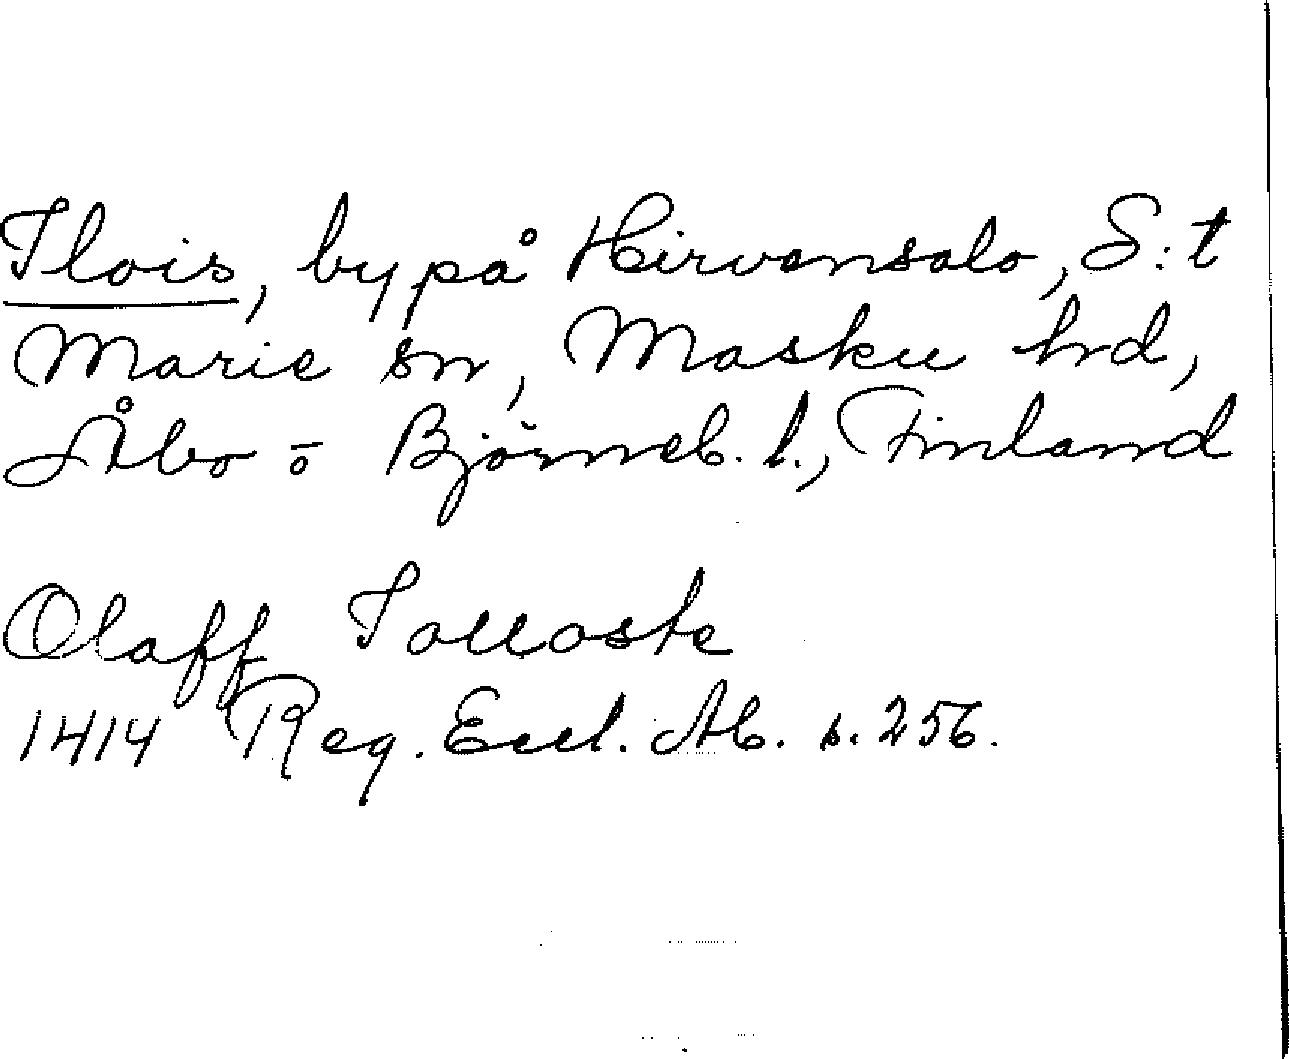 Ilois, by på Hirvensalo, S:t
Marie sn, Masku hrd,
Åbo o Björneb. l., Finland
Olaff Iolloste
1414 Reg. Eccl. Ab. s. 256.